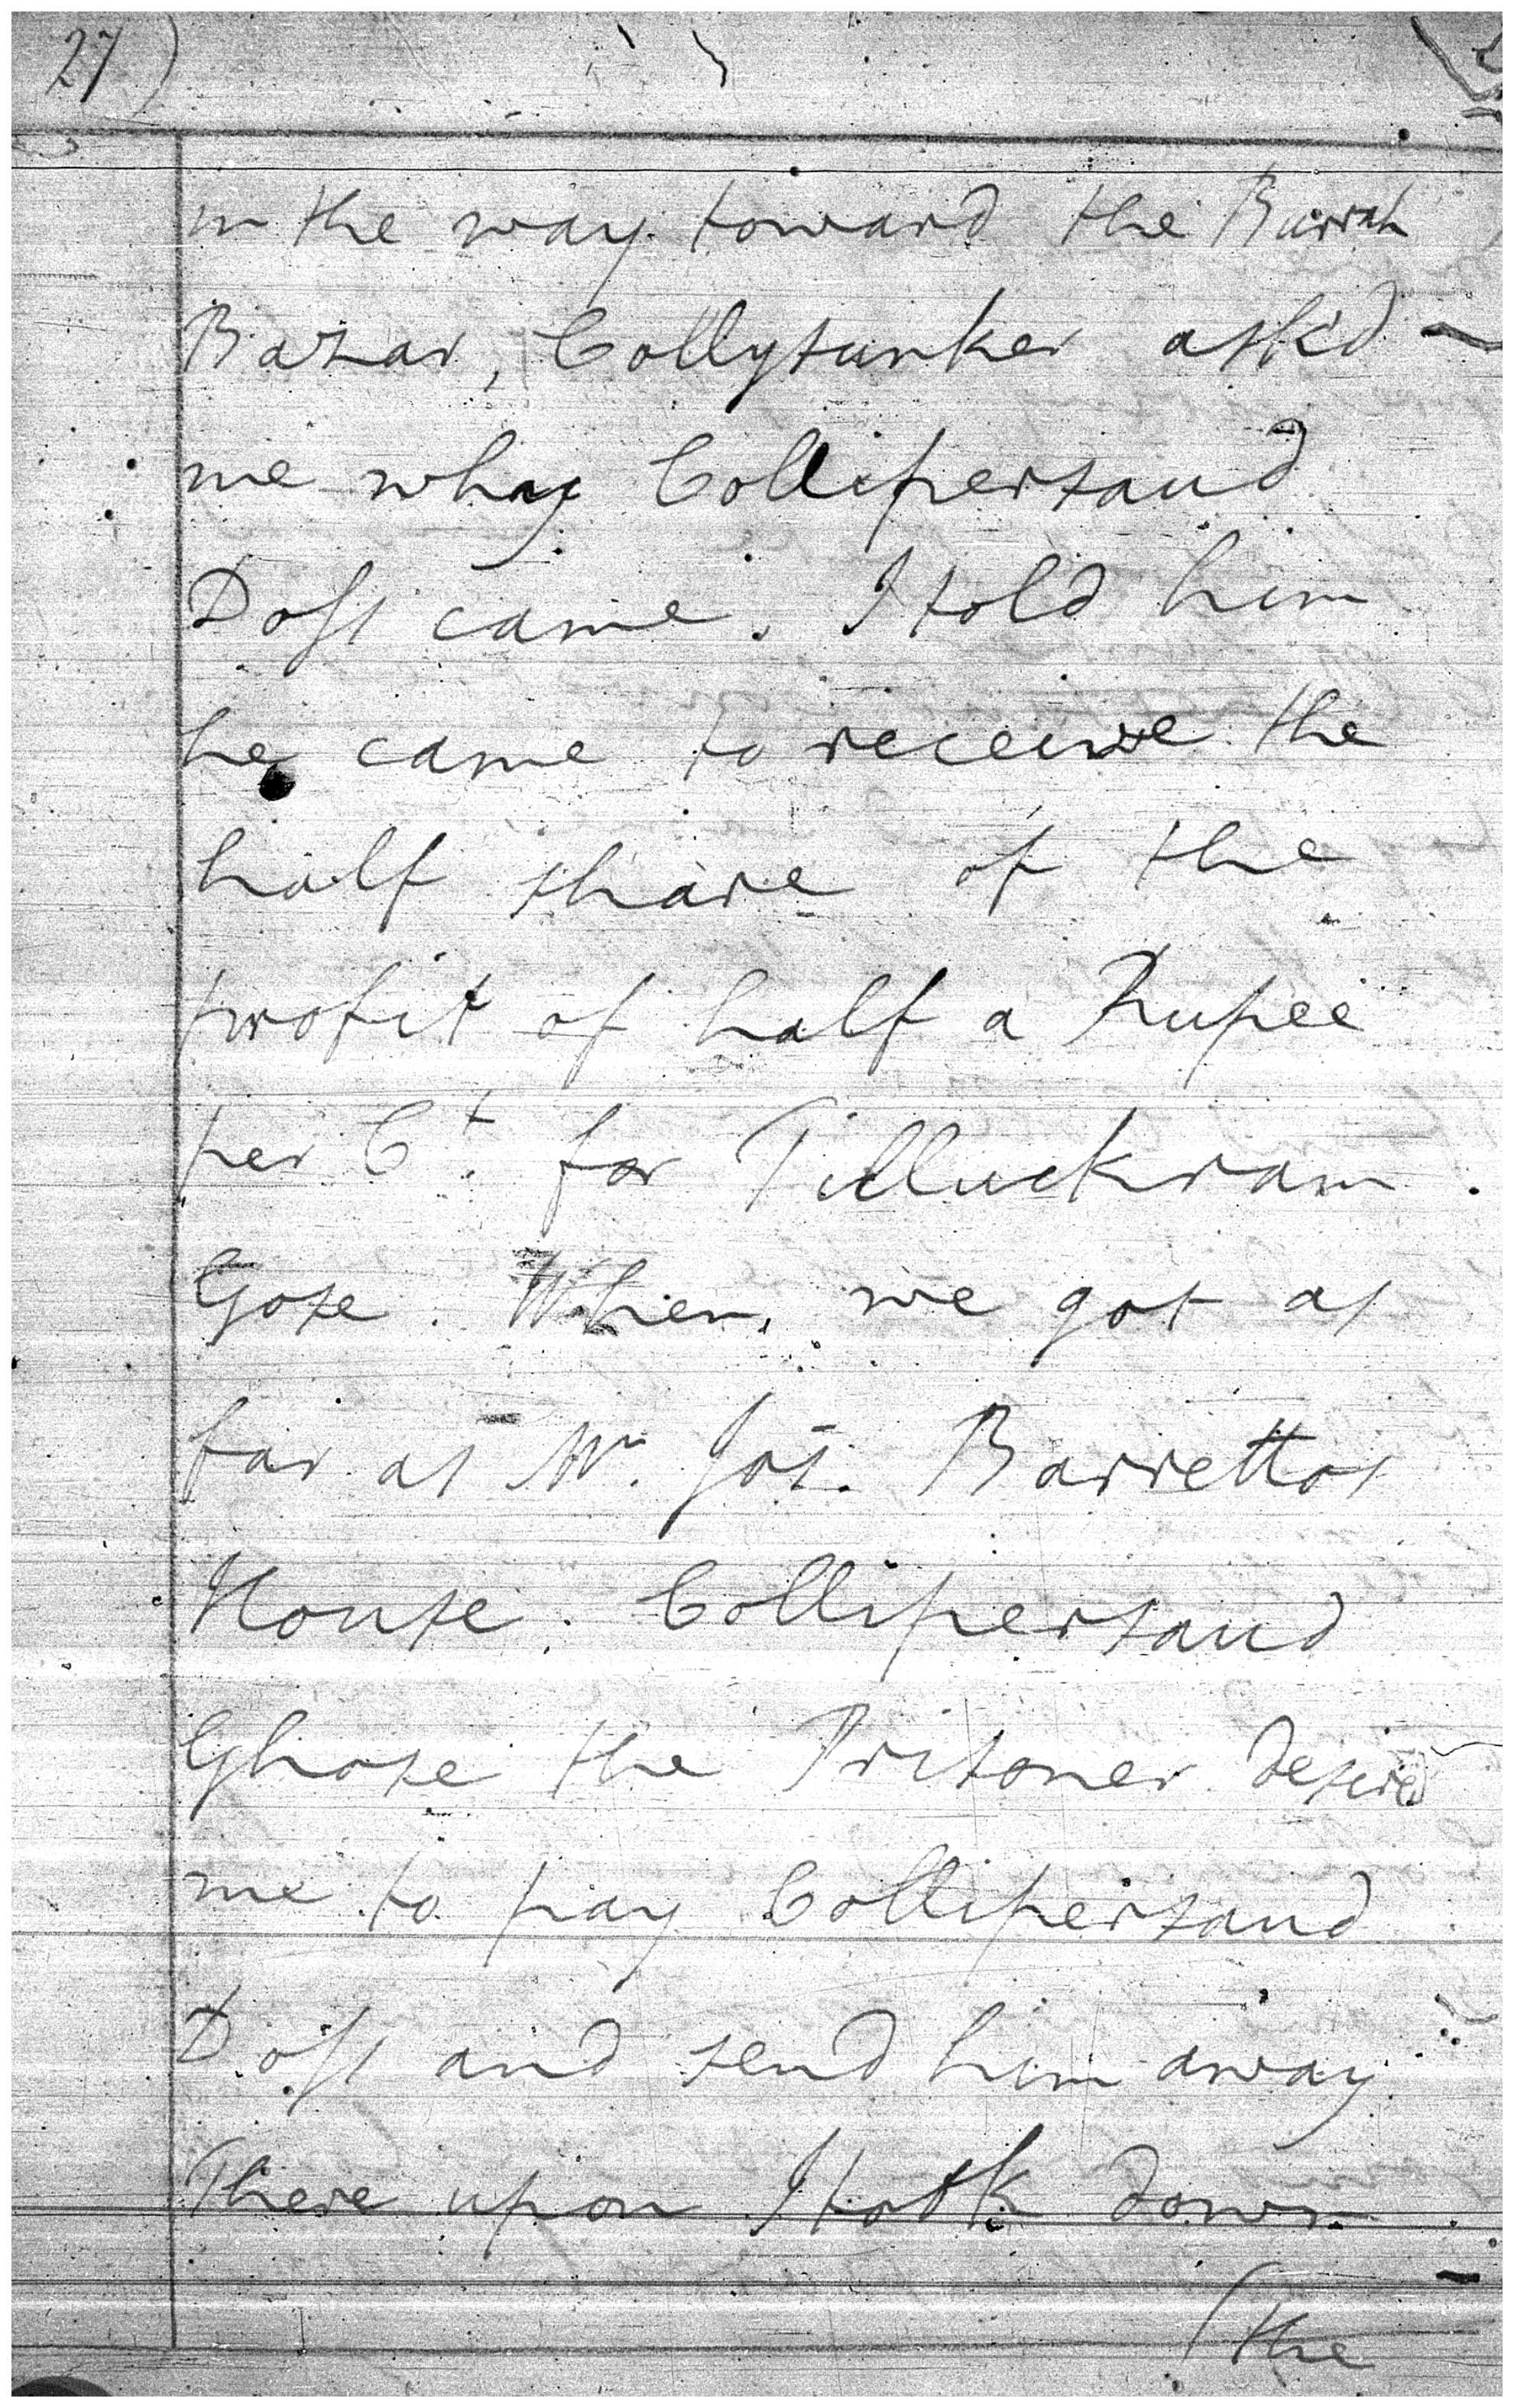 27)
in the way toward the Burrah
Bazar, Collysunker ask'd
me why Collipersaud
Doss came. I told him
he came to receive the
half share of the
profit of half a Rupee
per Ct. for Tilluckram
Gose. When, we got as
far as Mr. Jos. Barrettos
House. Collipersaud
Ghose the Prisoner desired
me to pay Collipersaud
Doss and send him away
There upon I took down
(the